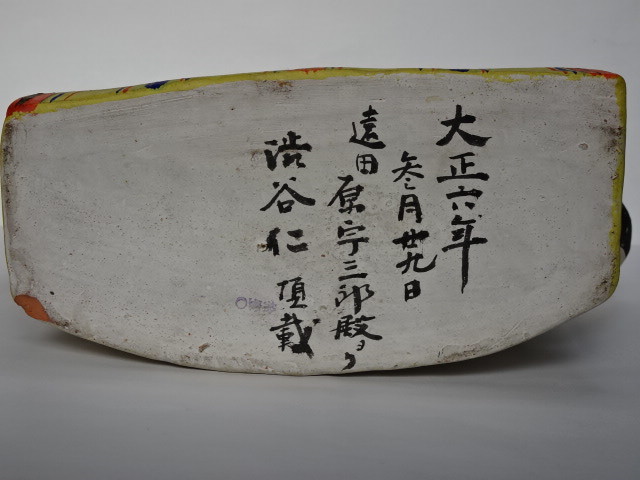 大正六年
叁月廿九日
遠田
原宇三郎殿ヨリ
渋谷仁頂戴